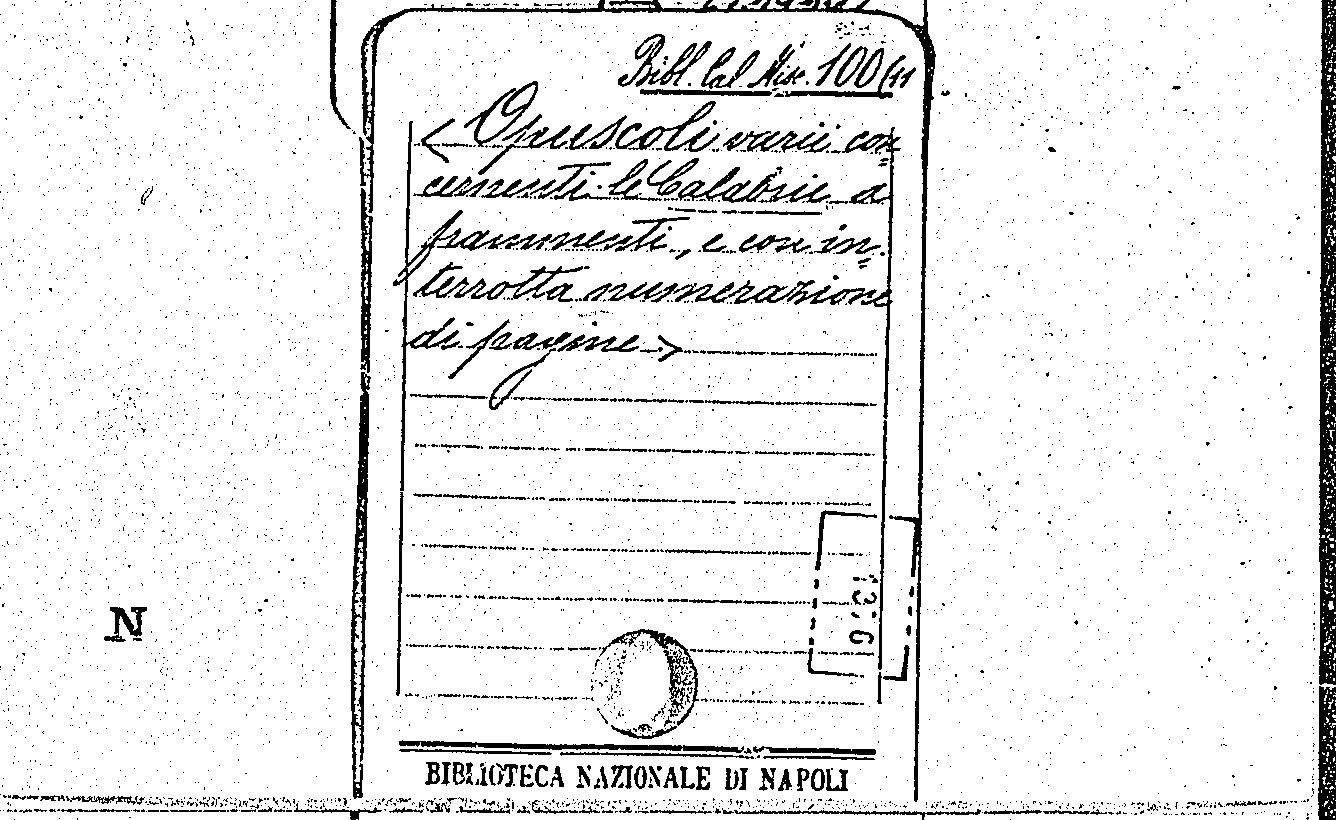 Bibl. Cal Misc. 100 (11
< Opuscoli varii con=
cernenti le Calabrie a
frammenti, e con in=
terrotta numerazione
di pagine >
N
BIBLIOTECA NAZIONALE DI NAPOLI